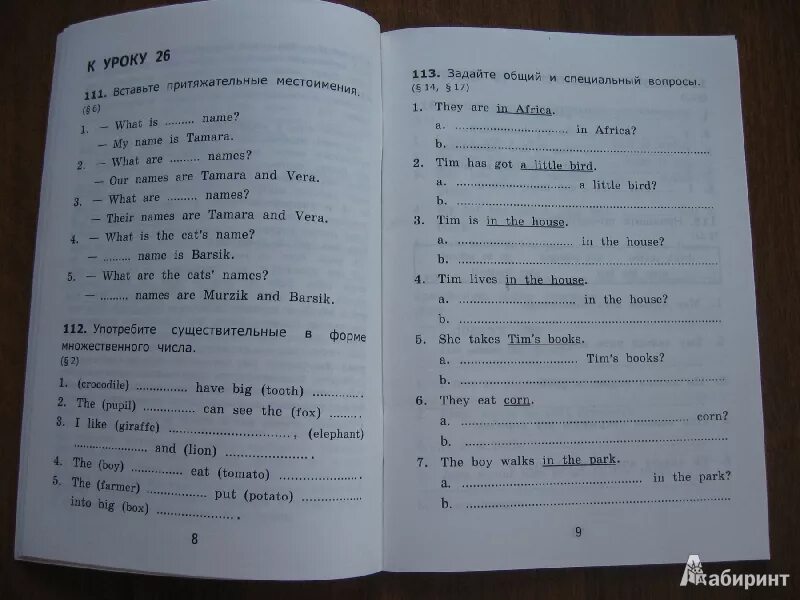 К УРОКУ 26
111. Вставьте притяжательные местоимения.
(§ 6)
1. – What is ......... name?
– My name is Tamara.
2. – What are ......... names?
– Our names are Tamara and Vera.
3. – What are ......... names?
– Their names are Tamara and Vera.
4. – What is the cat's name?
– ......... name is Barsik.
5. – What are the cats' names?
– ......... names are Murzik and Barsik.
112. Употребите существительные в форме
множественного числа.
(§ 2)
1. (crocodile) ............... have big (tooth) ...............
2. The (pupil) ............... can see the (fox) .........
3. I like (giraffe) ..............................., (elephant)
..................... and (lion) ...............................
4. The (boy) ............... eat (tomato) .....................
5. The (farmer) ............... put (potato) ...............
into big (box) ...............................
8
113. Задайте общий и специальный вопросы.
(§ 14, § 17)
1. They are in Africa.
a. ............................... in Africa?
b. ..............................................................
2. Tim has got a little bird.
a. ............................... a little bird?
b. ..............................................................
3. Tim is in the house.
a. ............................... in the house?
b. ..............................................................
4. Tim lives in the house.
a. ............................... in the house?
b. ..............................................................
5. She takes Tim's books.
a. ............................... Tim's books?
b. ..............................................................
6. They eat corn.
a. .............................................................. corn?
b. ..............................................................
7. The boy walks in the park.
a. ............................................... in the park?
b. ..............................................................
9
Лабиринт